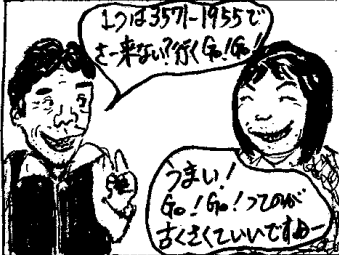 1つは3571-1955で
さー来ない?行くGo!Go!
うまい!
Go!Go!ってのが
古くさくていいですねー